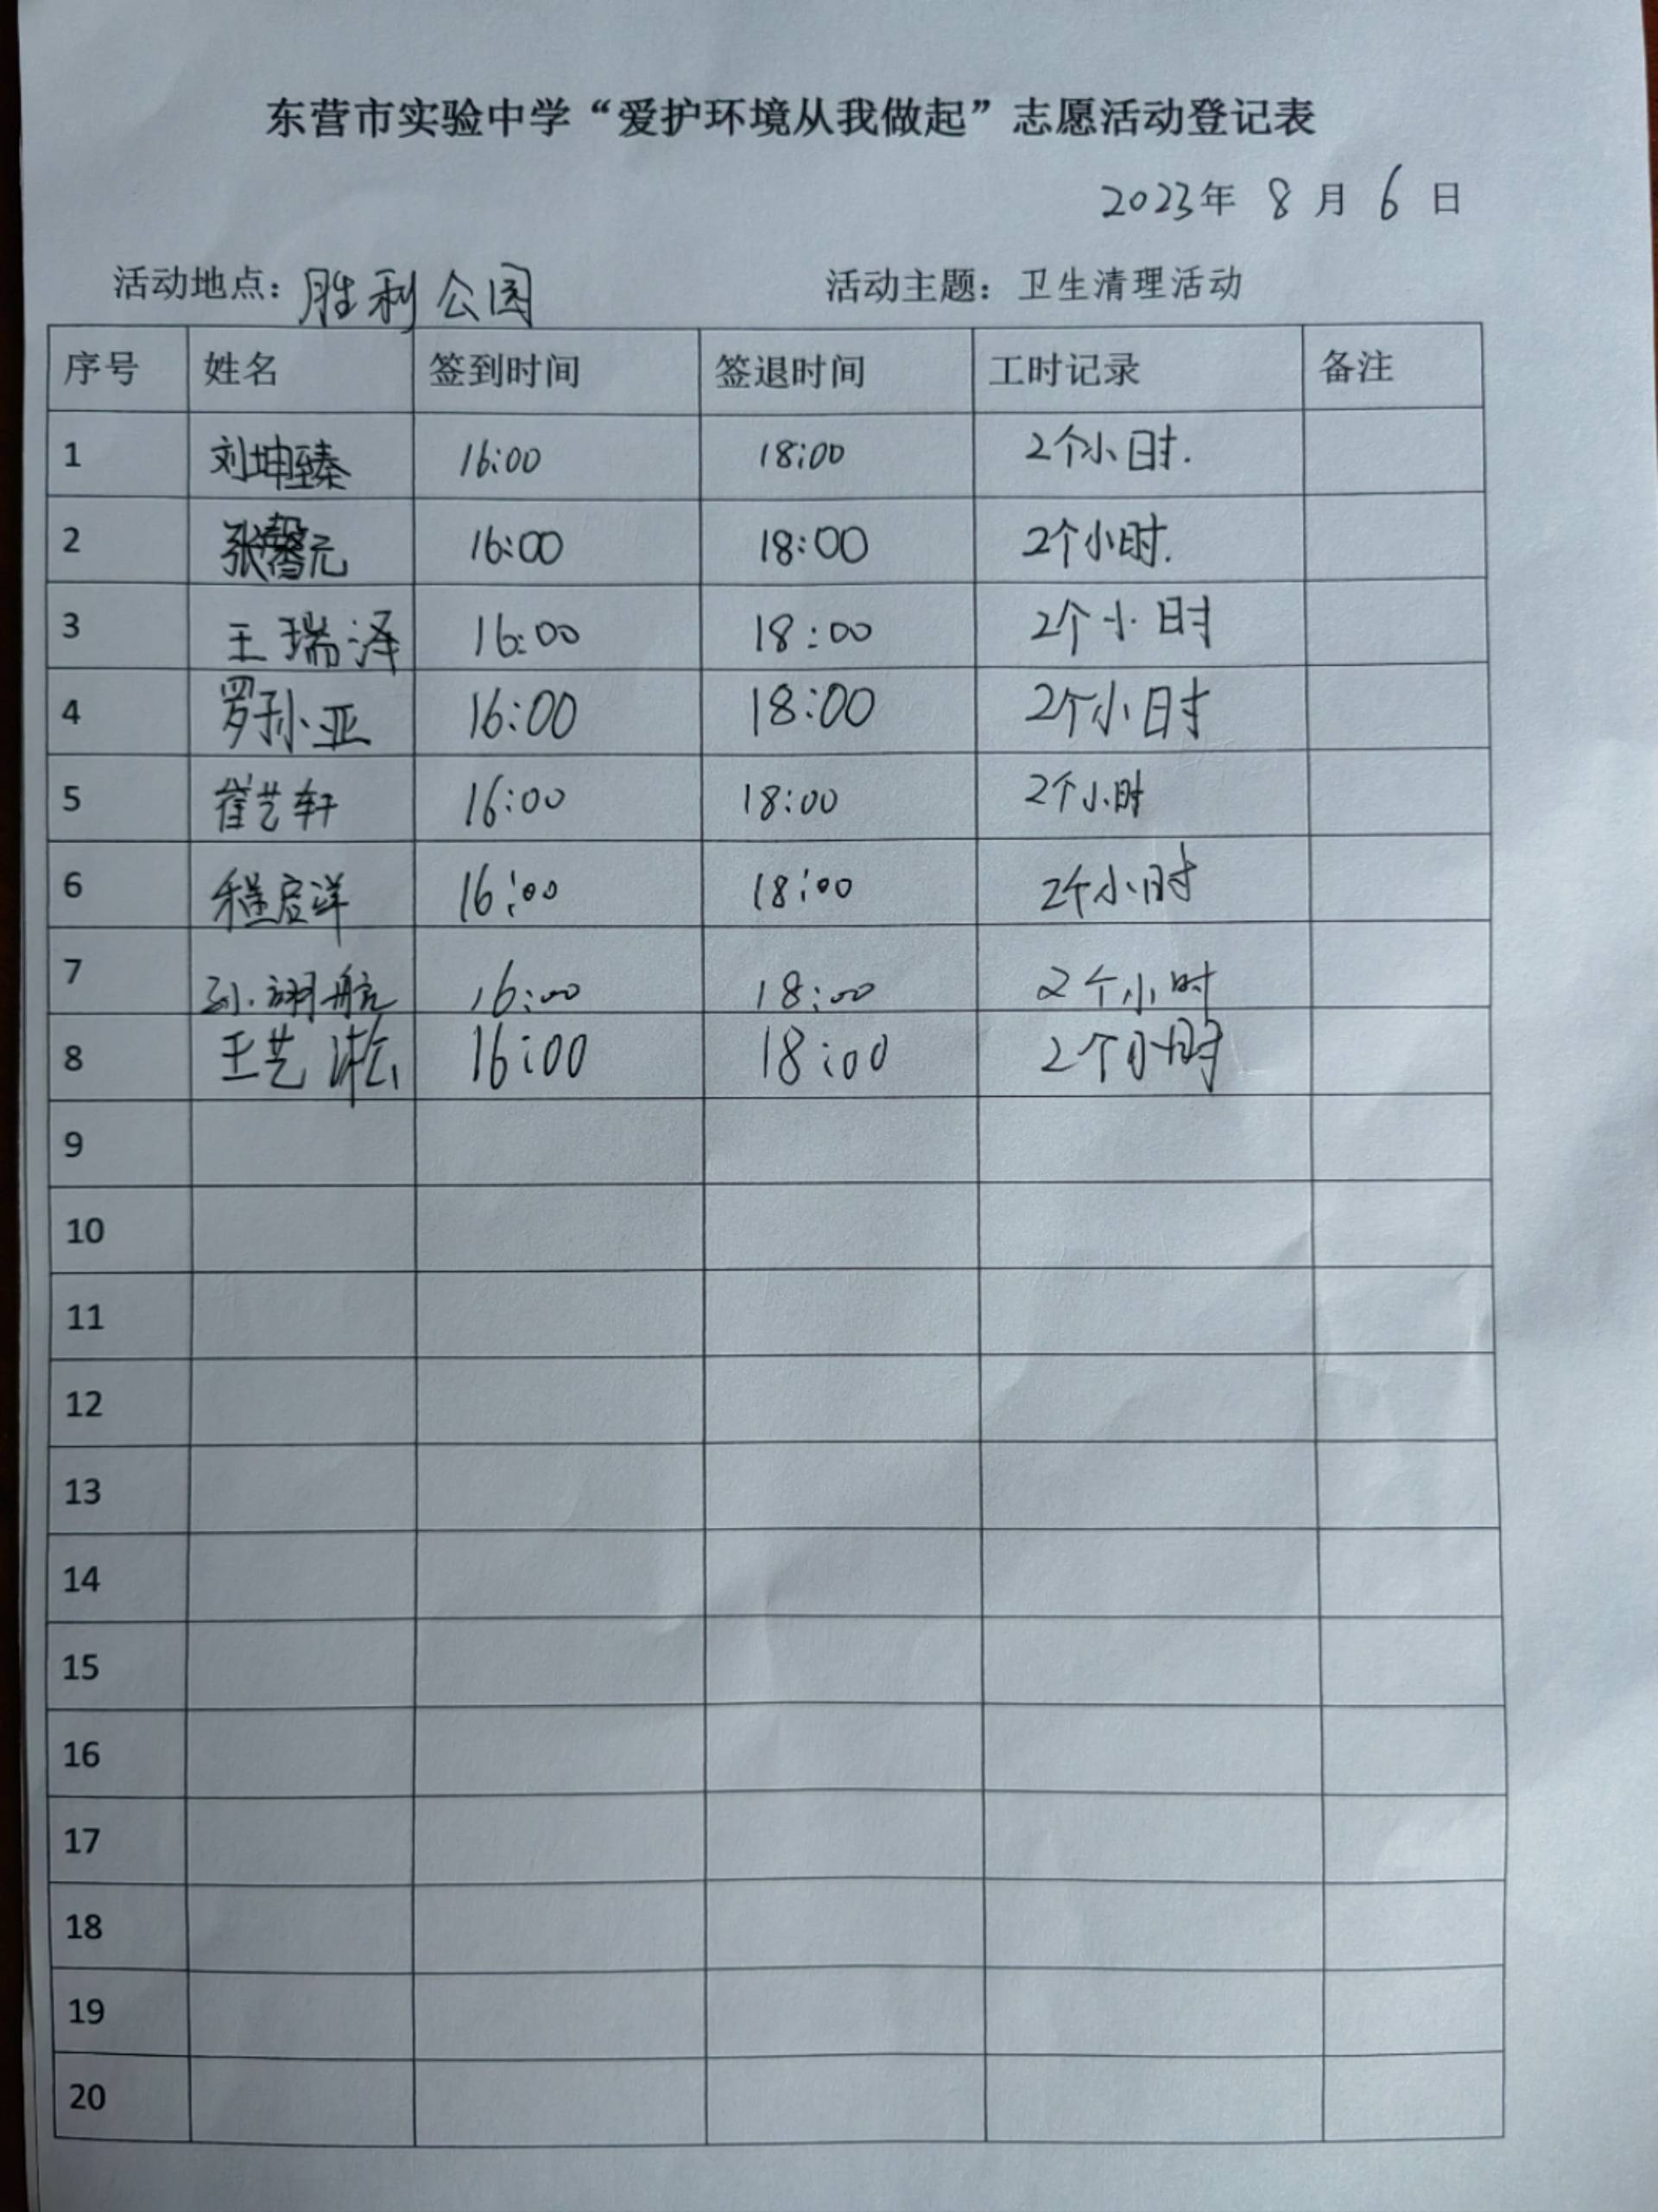 东营市实验中学“爱护环境从我做起”志愿活动登记表
2023年 8 月 6 日
活动地点：胜利公园 活动主题：卫生清理活动
序号 姓名 签到时间 签退时间 工时记录 备注
1 刘坤臻 16:00 18:00 2个小时.
2 张馨元 16:00 18:00 2个小时.
3 王瑞泽 16:00 18:00 2个小时
4 罗孙亚 16:00 18:00 2个小时
5 崔艺轩 16:00 18:00 2个小时
6 程启洋 16:00 18:00 2个小时
7 孙翊航 16:00 18:00 2个小时
8 王艺淞 16:00 18:00 2个小时
9
10
11
12
13
14
15
16
17
18
19
20